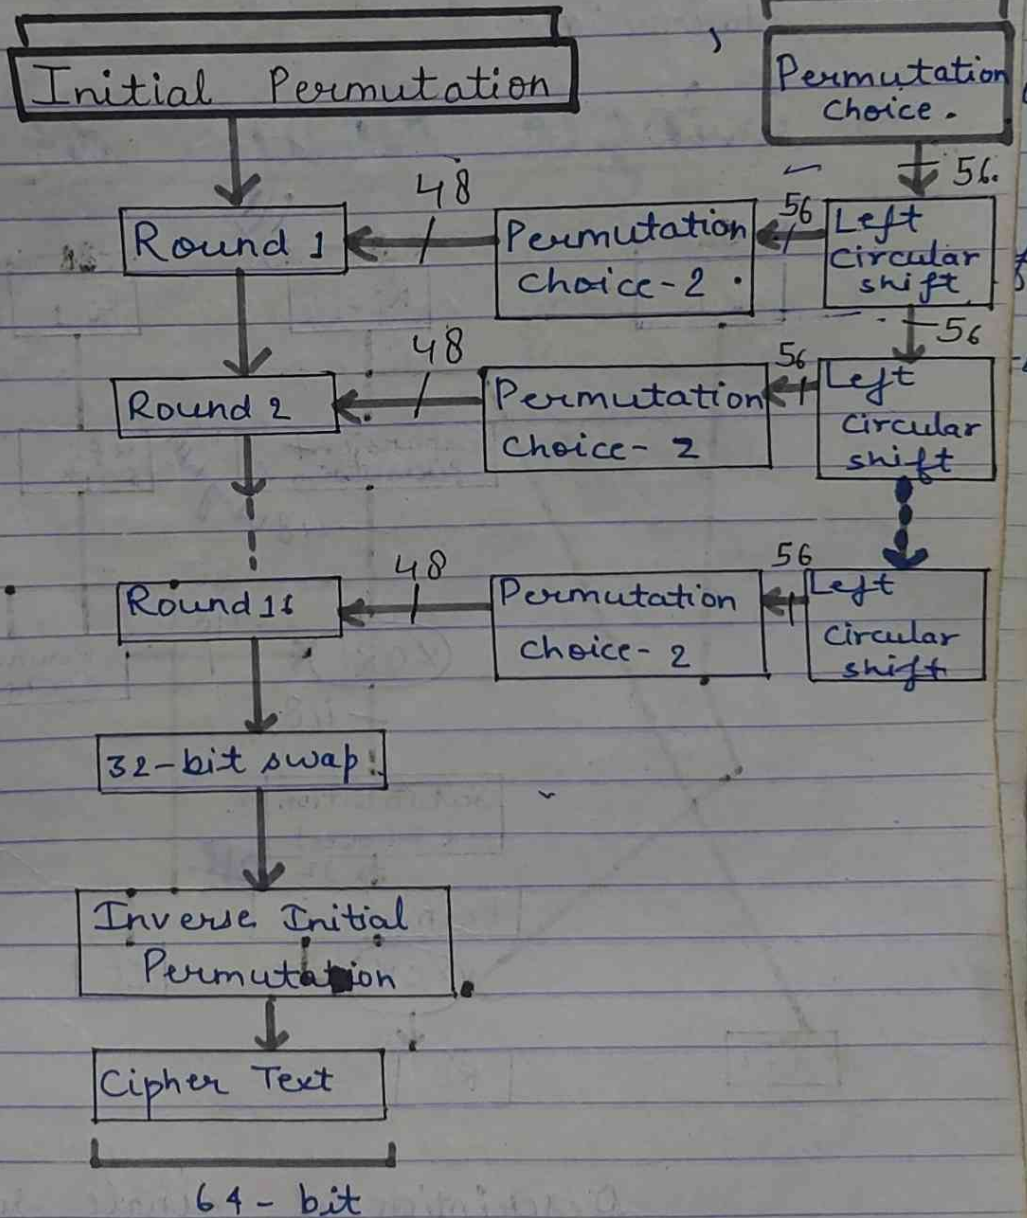 Initial Permutation
Permutation
Choice.
56.
Round 1
48
Permutation
Choice-2.
56
Left
circular
shift
56
Round 2
48
Permutation
Choice-2
56
Left
circular
shift
48
Permutation
Choice-2
56
Left
circular
shift
32-bit swap
Inverse Initial
Permutation
Cipher Text
64-bit